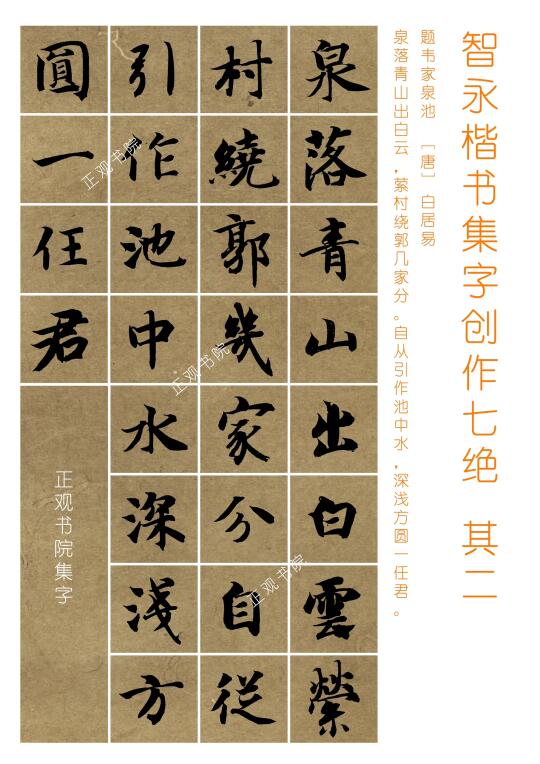 智永楷书集字创作七绝 其二
题韦家泉池 [唐] 白居易
泉落青山出白云，萦村绕郭几家分。自从引作池中水，深浅方圆一任君。
泉落青山出白雲縈
村繞郭幾家分自從
引作池中水深淺方
圓一任君
正观书院集字
正观书院
正观书院
正观书院